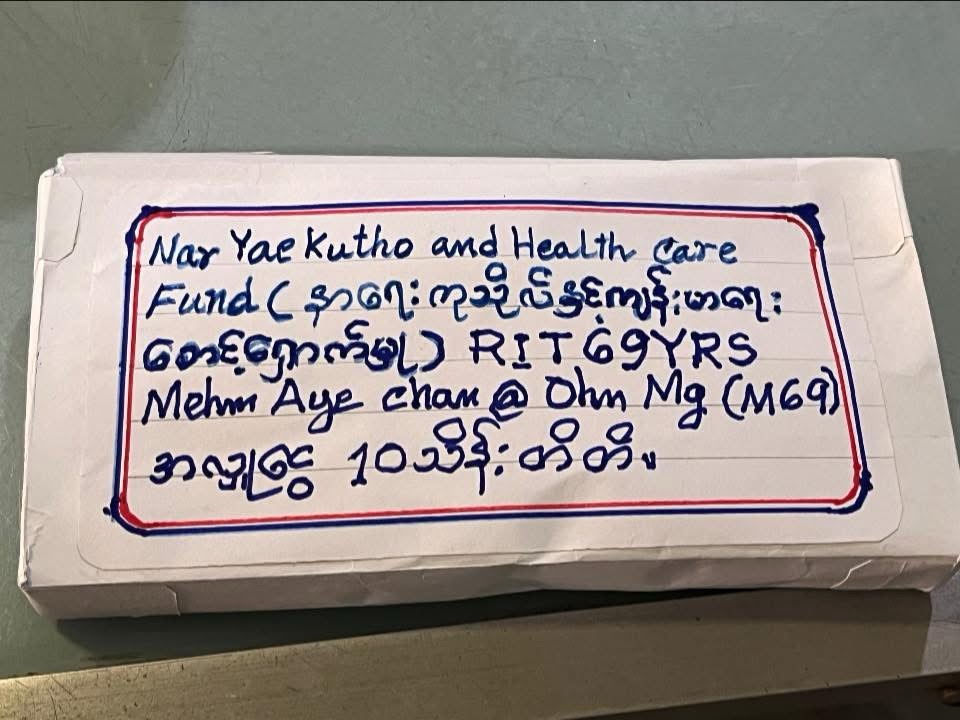 Nar Yae Kutho and Health care
Fund ( နာရေးကုသိုလ်နှင့်ကျန်းမာရေး
စောင့်ရှောက်မှု ) RIT 69YRS
Mehm Aye Chan @ Ohn Mg (M69)
အလှူငွေ 10သိန်းတိတိ။